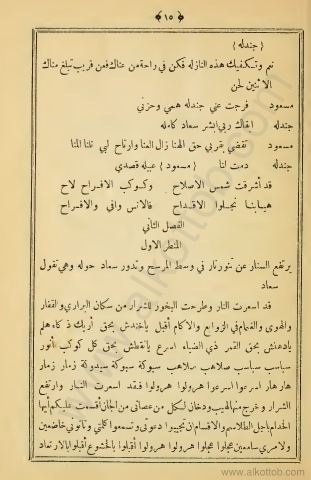 ﴿ ١٥ ﴾
﴿ جندله ﴾
نعم وتكفيك هذه النازله فكن في راحة من عناك فعن قريب تبلغ مناك
الاثنين لحن
مسعود فرجت عني جندله همي وحزني
جندله ابقاك ربي ابشر سعاد كامله
مسعود تقضي بقربي حق الهنا زال العنا وارتاح لبي نلنا المنا
جندله دمت لنا ﴿ مسعود ﴾ عبيله قصدي
قد أشرقت شمس الاصلاح وكوكب الافراح لاح
هيا بنا نجلوا الاقداح فالانس وافى والافراح
الفصل الثاني
المنظر الاول
يرتفع الستار عن تنور نار في وسط المرسح وتدور سعاد حوله وهي تقول
سعاد
قد اسعرت النار وطرحت البخور للشرار من سكان البراري والقفار
والهوى والغمام في الزوابع والاكام أقبل ياخندش بحق أربك ذكاهلم
يادهنش بحق القمر ذي الضياء اسرع يانقطش بحق كل كوكب نأنور
سباسب سباسب صلاهب سلاهب سبوكة سبوكة سيدوكة زمار زمار
هارهار اسرعوا اسرعوا هرولوا هرولوا فقد اسعرت النار وارتفع
الشرار وخرج منها لهيب ودخان لكل من عصاني من الجان أقسمت عليكم أيها
الخدام باجل الطلاسم والاقسام ان تجيبوا دعوتي وتسمعوا كلمتي وتأتوني خاضعين
ولامري سامعين عجلوا عجلوا هرولوا هرولوا أقبلوا بالخشوع أقبلوا بالارتعاد
www.alkottob.com
www.alkottob.com